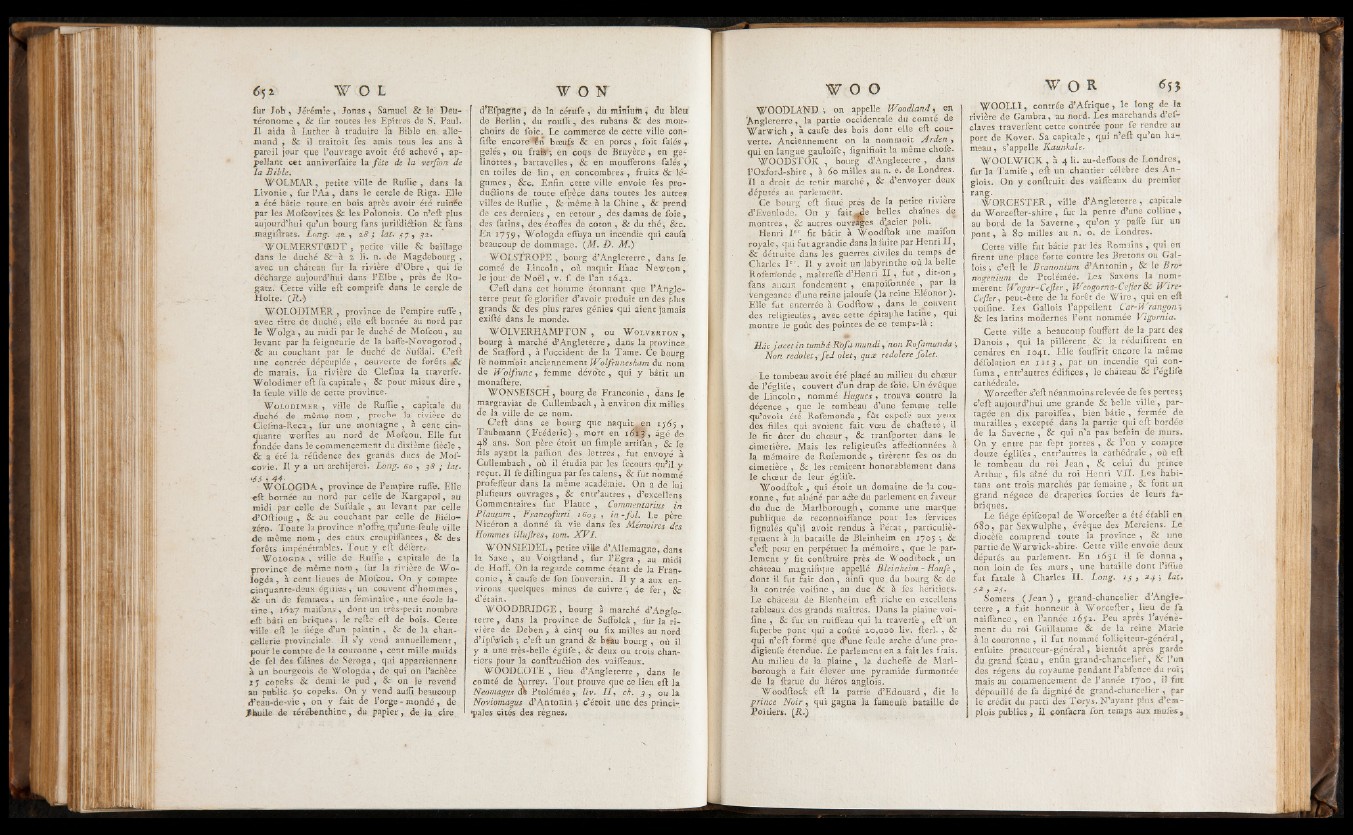 652 WOL
ſur Job, Jérémie, Jonas, Samuel & le Deu-
téronome, & ſur toutes les Epîtres de S. Paul.
Il aida à Luther à traduire la Bible en alle-
mand, & il traitoit ſes amis tous les ans à
pareil jour que l'ouvrage avoit été achevé, ap-
pellant cet anniverſaire la fête de la verſion de
la Bible.
WOLMAR, petite ville de Ruſſie, dans la
Livonie, ſur l'Aa, dans le cercle de Riga. Elle
a été bâtie toute en bois après avoir été ruinée
par les Moſcovites & les Polonnois. Ce n'eſt plus
aujourd'hui qu'un bourg ſans juriſdiction & ſans
magiſtrats. Long. 42, 28; lat. 57, 32.
WOLMERSTŒDT, petite ville & bailliage
dans le duché & à 2 li. n. de Magdebourg,
avec un château ſur la rivière d'Obre, qui ſe
décharge aujourd'hui dans l'Elbe, près de Ro-
gatz. Cette ville eſt compriſe dans le cercle de
Holte. (R.)
WOLODIMER, province de l'empire ruſſe,
avec titre de duché; elle eſt bornée au nord par
le Wolga, au midi par le duché de Moſcou, au
levant par la ſeigneurie de la baſſe-Novogorod,
& au couchant par le duché de Suſdal. C'eſt
une contrée dépeuplée, couverte de forêts &
de marais. La rivière de Cleſma la traverſe.
Wolodimer eſt ſa capitale, & pour mieux dire,
la ſeule ville de cette province.
WOLODIMER, ville de Ruſſie, capitale du
duché de même nom, proche la rivière de
Cleſma-Reca, ſur une montagne, à cent cin-
quante werſtes au nord de Moſcou. Elle fut
fondée dans le commencement du dixième ſiècle,
& a été la réſidence des grands ducs de Moſ-
covie. Il y a un archijerei. Long. 60, 38; lat.
55, 44.
WOLOGDA, province de l'empire ruſſe. Elle
eſt bornée au nord par celle de Kargapol, au
midi par celle de Suſdale, au levant par celle
d'Oſtioug, & au couchant par celle de Biélo-
zéro. Toute la province n'offre qu'une ſeule ville
de même nom, des eaux croupiſſantes, & des
forêts impénétrables. Tout y eſt déſert.
WOLOGDA, ville de Ruſſie, capitale de la
province de même nom, ſur la rivière de Wo-
logda, à cent lieues de Moſcou. On y compte
cinquante-deux égliſes, un couvent d'hommes,
& un de femmes, un ſéminaire, une école la-
tine, 1627 maiſons, dont un très-petit nombre
eſt bâti en briques; le reſte eſt de bois. Cette
ville eſt le ſiège d'un palatin, & de la chan-
cellerie provinciale. Il s'y vend annuellement,
pour le compte de la couronne, cent mille muids
de ſel des ſalines de Seroga, qui appartiennent
à un bourgeois de Wologda, de qui on l'achète
15 copeks & demi le pud, & on le revend
au public 50 copeks. On y vend auſſi beaucoup
d'eau-de-vie, on y fait de l'orge-mondé, de
l'huile de térébenthine, du papier, de la cire
WON
d'Eſpagne, de la céruſe, du minium, du bleu
de Berlin, du rouſſi, des rubans & des mou-
choirs de ſoie. Le commerce de cette ville con-
ſiſte encore en bœufs & en porcs, ſoit ſalés,
gelés, ou frais; en coqs de Bruyère, en ge-
linottes, bartavelles, & en mouſſerons ſalés,
en toiles de lin, en concombres, fruits & lé-
gumes, &c. Enfin cette ville envoie ſes pro-
ductions de toute eſpèce dans toutes les autres
villes de Ruſſie, & même à la Chine, & prend
de ces derniers, en retour, des damas de ſoie,
des ſatins, des étoffes de coton, & du thé, &c.
En 1759, Wologda eſſuya un incendie qui cauſa
beaucoup de dommage. (M. D. M.)
WOLSTROPE, bourg d'Angleterre, dans le
comté de Lincoln, où naquit Iſaac Newton,
le jour de Noël, v. ſ. de l'an 1642.
C'eſt dans cet homme étonnant que l'Angle-
terre peut ſe glorifier d'avoir produit un des plus
grands & des plus rares génies qui aient jamais
exiſté dans le monde.
WOLVERHAMPTON, ou WOLVERTON,
bourg à marché d'Angleterre, dans la province
de Staſford, à l'occident de la Tame. Ce bourg
ſe nommoit anciennement Wolfrunesham du nom
de Wolfrune, femme dévote, qui y bâtit un
monaſtère.
WONSEISCH, bourg de Franconie, dans le
margraviat de Cullembach, à environ dix milles
de la ville de ce nom.
C'eſt dans ce bourg que naquit en 1565,
Taubmann (Fréderic), mort en 1613, âgé de
48 ans. Son père étoit un ſimple artiſan, & le
fils ayant la paſſion des lettres, fut envoyé à
Cullembach, où il étudia par les ſecours qu'il y
reçut. Il ſe diſtingua par ſes talens, & fut nommé
profeſſeur dans la même académie. On a de lui
pluſieurs ouvrages, & entr'autres, d'excellens
Commentaires ſur Plaute, Commentarius in
Plautum, Francofurti 1605, in-fol. Le père
Nicéron a donné ſa vie dans ſes Mémoires des
Hommes illuſtres, tom. XVI.
WONSIEDEL, petite ville d'Allemagne, dans
la Saxe, au Voigtland, ſur l'Egra, au midi
de Hoff. On la regarde comme étant de la Fran-
conie, à cauſe de ſon ſouverain. Il y a aux en-
virons quelques mines de cuivre, de fer, &
d'étain.
WOODBRIDGE, bourg à marché d'Angle-
terre, dans la province de Suffolck, ſur la ri-
vière de Deben, à cinq ou ſix milles au nord
d'Ipſwich; c'eſt un grand & beau bourg, où il
y a une très-belle égliſe, & deux ou trois chan-
tiers pour la conſtruction des vaiſſeaux.
WOODCOTE, lieu d'Angleterre, dans le
comté de Surrey. Tout prouve que ce lieu eſt la
Neomagus de Ptolémée, liv. II, ch. 3, ou la
Noviomagus d'Antonin; c'étoit une des princi-
pales cités des règnes.
WOO
WOODLAND; on appelle Woodland, en
Angleterre, la partie occidentale du comté de
Warwich, à cauſe des bois dont elle eſt cou-
verte. Anciennement on la nommoit Arden,
qui en langue gauloiſe, ſignifioit la même choſe.
WOODSTOK, bourg d'Angleterre, dans
l'Oxford-shire, à 60 milles au n. e. de Londres.
Il a droit de tenir marché, & d'envoyer deux
députés au parlement.
Ce bourg eſt ſitué près de la petite rivière
d'Evenlode. On y fait de belles chaînes de
montres, & autres ouvrages d'acier poli.
Henri Ier fit bâtir à Woodſtok une maiſon
royale, qui fut agrandie dans la ſuite par Henri II,
& détruite dans les guerres civiles du temps de
Charles Ier. Il y avoit un labyrinthe où la belle
Roſemonde, maîtreſſe d'Henri II, fut, dit-on,
ſans aucun fondement, empoiſonnée, par la
vengeance d'une reine jalouſe (la reine Eléonor).
Elle fut enterrée à Godſtow, dans le couvent
des religieuſes, avec cette épitaphe latine, qui
montre le goût des pointes de ce temps-là:
Hâc jacet in tumbâ Roſa mundi, non Roſamunda;
Non redolet, ſed olet, quæ redolere ſolet.
Le tombeau avoit été placé au milieu du chœur
de l'égliſe, couvert d'un drap de ſoie. Un évêque
de Lincoln, nommé Hugues, trouva contre la
décence, que le tombeau d'une femme telle
qu'avoit été Roſemonde, fût expoſé aux yeux
des filles qui avoient fait vœu de chaſteté; il
le fit ôter du chœur, & tranſporter dans le
cimetière. Mais les religieuſes affectionnées à
la mémoire de Roſemonde, tirèrent ſes os du
cimetière, & les remirent honorablement dans
le chœur de leur égliſe.
Woodſtok, qui étoit un domaine de la cou-
ronne, fut aliéné par acte du parlement en faveur
du duc de Marlborough, comme une marque
publique de reconnoiſſance pour les ſervices
ſignalés qu'il avoit rendus à l'état, particuliè-
rement à la bataille de Bleinheim en 1705; &
c'eſt pour en perpétuer la mémoire, que le par-
lement y fit conſtruire près de Woodſtock, un
château magnifique appellé Bleinheim-Houſe,
dont il fut fait don, ainſi que du bourg & de
la contrée voiſine, au duc & à ſes héritiers.
Le château de Blenheim eſt riche en excellens
tableaux des grands maîtres. Dans la plaine voi-
ſine, & ſur un ruiſſeau qui la traverſe, eſt un
ſuperbe pont qui a coûté 20,000 liv. ſterl., &
qui n'eſt formé que d'une ſeule arche d'une pro-
digieuſe étendue. Le parlement en a fait les frais.
Au milieu de la plaine, la ducheſſe de Marl-
borough a fait élever une pyramide ſurmontée
de la ſtatue du héros anglois.
Woodſtock eſt la patrie d'Edouard, dit le
prince Noir, qui gagna la fameuſe bataille de
Poitiers. (R.)
WOR 653
WOOLLI, contrée d'Afrique, le long de la
rivière de Gambra, au nord. Les marchands d'eſ-
claves traverſent cette contrée pour ſe rendre au
port de Kover. Sa capitale, qui n'eſt qu'un ha-
meau, s'appelle Kaunkale.
WOOLWICK, à 4 li. au-deſſous de Londres,
ſur la Tamiſe, eſt un chantier célèbre des An-
glois. On y conſtruit des vaiſſeaux du premier
rang.
WORCESTER, ville d'Angleterre, capitale
du Worceſter-shire, ſur la pente d'une colline,
au bord de la Saverne, qu'on y paſſe ſur un
pont, à 80 milles au n. o. de Londres.
Cette ville fut bâtie par les Romains, qui en
firent une place forte contre les Bretons ou Gal-
lois; c'eſt le Branonium d'Antonin, & le Bro-
nogenium de Ptolémée. Les Saxons la nom-
mèrent Wogar-Ceſter, Weogorna-Ceſter & Wire-
Ceſter, peut-être de la forêt de Wire, qui en eſt
voiſine. Les Gallois l'appellent Car-Wrangon;
& les latins modernes l'ont nommée Vigornia.
Cette ville a beaucoup ſouffert de la part des
Danois, qui la pillèrent & la réduiſirent en
cendres en 1041. Elle ſouffrit encore la même
déſolation en 1113, par un incendie qui con-
ſuma, entr'autres édifices, le château & l'égliſe
cathédrale.
Worceſter s'eſt néanmoins relevée de ſes pertes;
c'eſt aujourd'hui une grande & belle ville, par-
tagée en dix paroiſſes, bien bâtie, fermée de
murailles, excepté dans la partie qui eſt bordée
de la Saverne, & qui n'a pas beſoin de murs.
On y entre par ſept portes, & l'on y compte
douze égliſes, entr'autres la cathédrale, où eſt
le tombeau du roi Jean, & celui du prince
Arthur, fils aîné du roi Henri VII. Les habi-
tans ont trois marchés par ſemaine, & font un
grand négoce de draperies ſorties de leurs fa-
briques.
Le ſiége épiſcopal de Worceſter a été établi en
680, par Sexwulphe, évêque des Merciens. Le
diocèſe comprend toute la province, & une
partie de Warwick-shire. Cette ville envoie deux
députés au parlement. En 1651 il ſe donna,
non loin de ſes murs, une bataille dont l'iſſue
fut fatale à Charles II. Long. 15, 24; lat.
52, 25.
Somers (Jean), grand-chancelier d'Angle-
terre, a fait honneur à Worceſter, lieu de ſa
naiſſance, en l'année 1652. Peu après l'avène-
ment du roi Guillaume & de la reine Marie
à la couronne, il fut nommé ſolliciteur-général,
enſuite procureur-général, bientôt après garde
du grand ſceau, enfin grand-chancelier, & l'un
des régens du royaume pendant l'abſence du roi;
mais au commencement de l'année 1700, il fut
dépouillé de ſa dignité de grand-chancelier, par
le crédit du parti des Torys. N'ayant plus d'em-
plois publics, il conſacra ſon temps aux muſes,